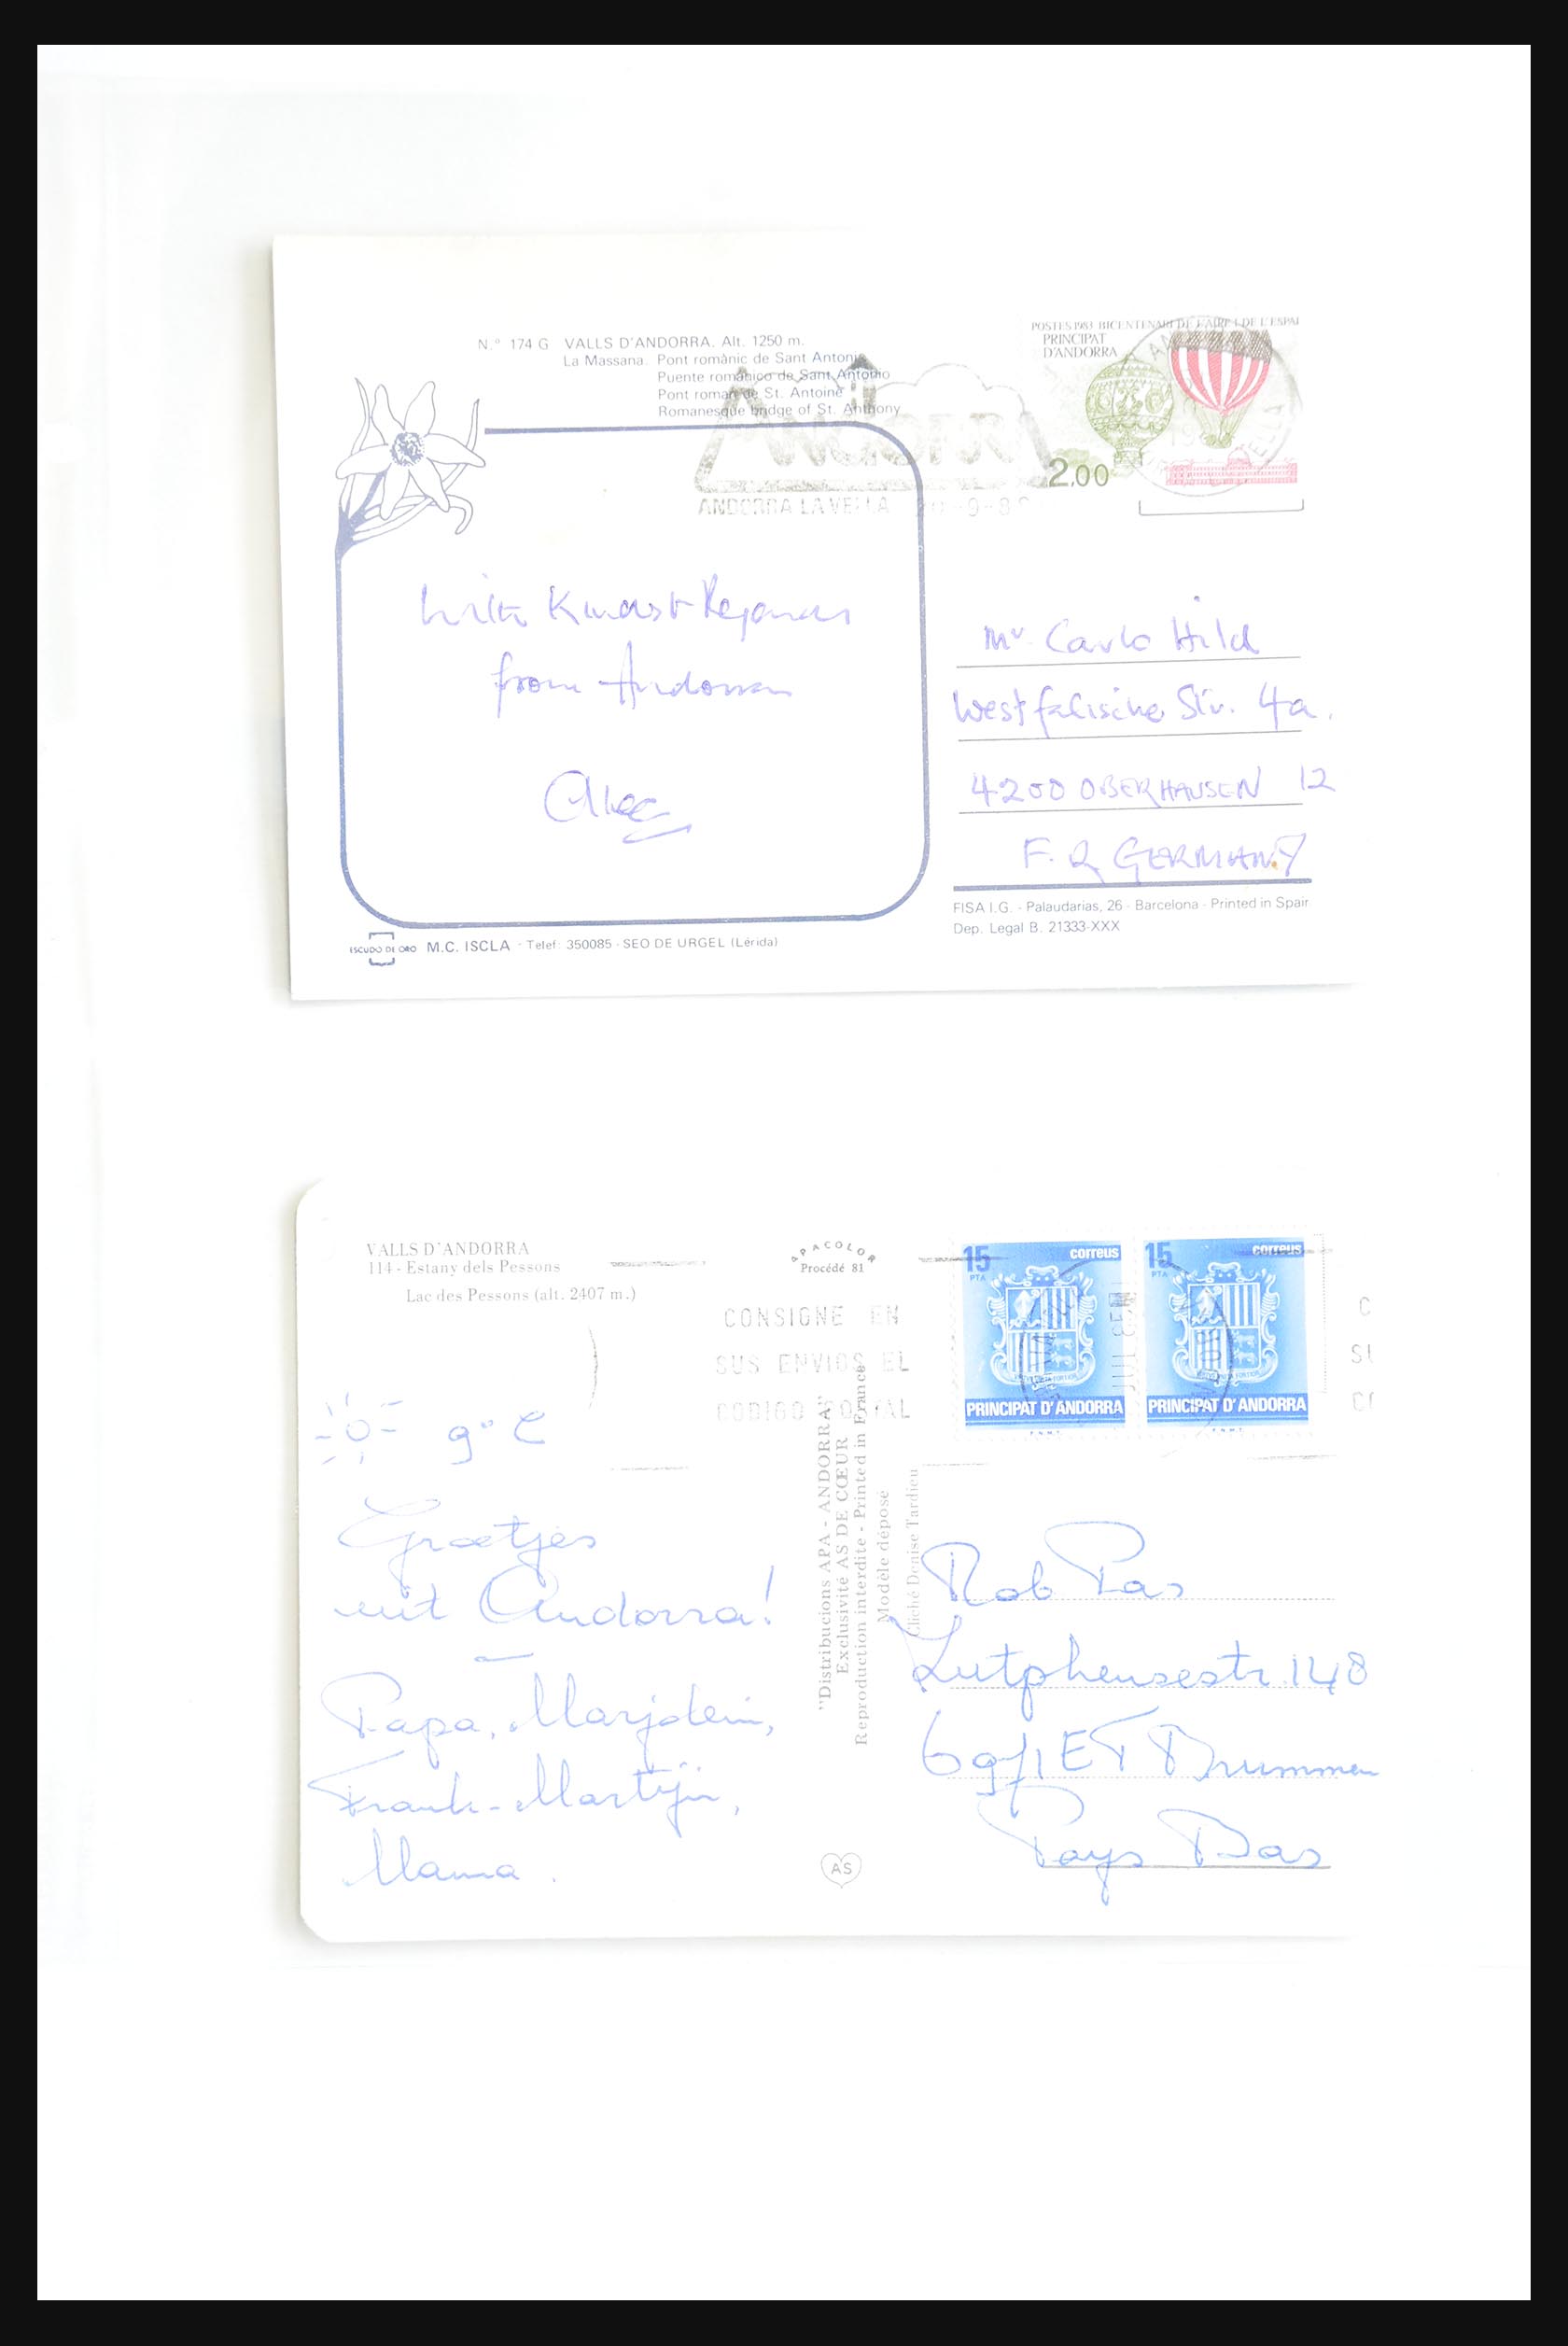 N.º 174 G VALLS D'ANDORRA. Alt. 1250 m.
La Massana. Pont romànic de Sant Antoni
Puente románico de Sant Antonio
Pont roman de St. Antoine
Romanesque bridge of St. Anthony
POSTES 1983 BICENTENARI DE L'AIRE I DE L'ESPAI
PRINCIPAT
D'ANDORRA
2,00
ANDORRA
ANDORRA LA VELLA
With Kindest Regards
from Andorra
Mr. Carlo Hild
Westfalische Str. 4a.
4200 OBERHAUSEN 12
F. R GERMANY
FISA I.G. - Palaudarias, 26 - Barcelona - Printed in Spain
Dep. Legal B. 21333-XXX
ESCUDO DE ORO M.C. ISCLA - Telef: 350085 - SEO DE URGEL (Lérida)
VALLS D'ANDORRA
114 - Estany dels Pessons
Lac des Pessons (alt. 2407 m.)
APACOLOR
Procédé 81
CONSIGNE EN
SUS ENVIOS EL
CODIGO POSTAL
15 PTA correus
PRINCIPAT D'ANDORRA
F.N.M.T.
15 PTA correus
PRINCIPAT D'ANDORRA
F.N.M.T.
9° C
Groetjes
uit Andorra!
Papa, Marjolein,
Frank-Martijn,
Mama.
"Distribucions APA - ANDORRA"
Exclusivité AS DE CŒUR
Reproduction interdite - Printed in France
Modèle déposé
Cliché Denise Tardieu
Rob Pas
Zutphensestr. 148
6971 ET Brummen
Pays Bas
AS